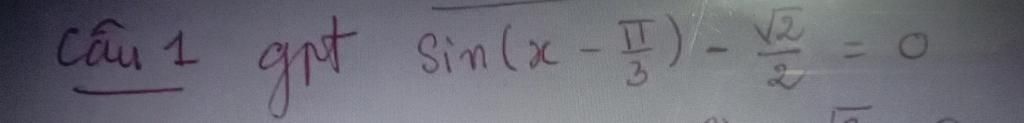 Câu 1 gpt sin(x - π/3) - √2/2 = 0